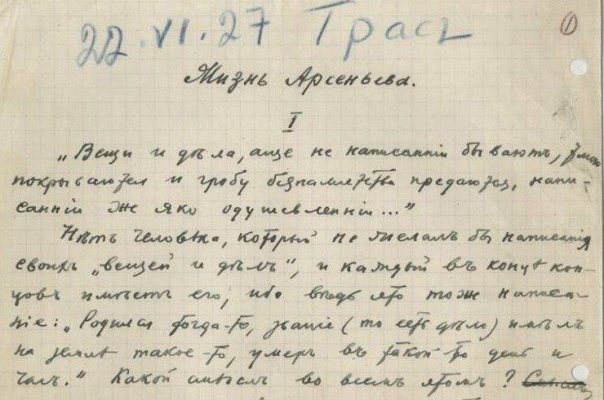 22.VI.27 Грасъ
1
Жизнь Арсеньева.
I
„Вещи и дѣла, аще не написаннiи бываютъ, тмою
покрываются и гробу безпамятства предаются, напи-
саннiи же яко одушевленнiи..."
Нѣтъ человѣка, который не желалъ бы написанiя
своихъ „вещей и дѣлъ", и каждый въ концѣ кон-
цовъ имѣетъ его, ибо вѣдь это тоже написа-
нiе: „Родился тогда-то, званiе (то есть дѣло) имѣлъ
на землѣ такое-то, умеръ въ такой-то день и
часъ." Какой смыслъ во всемъ этомъ?